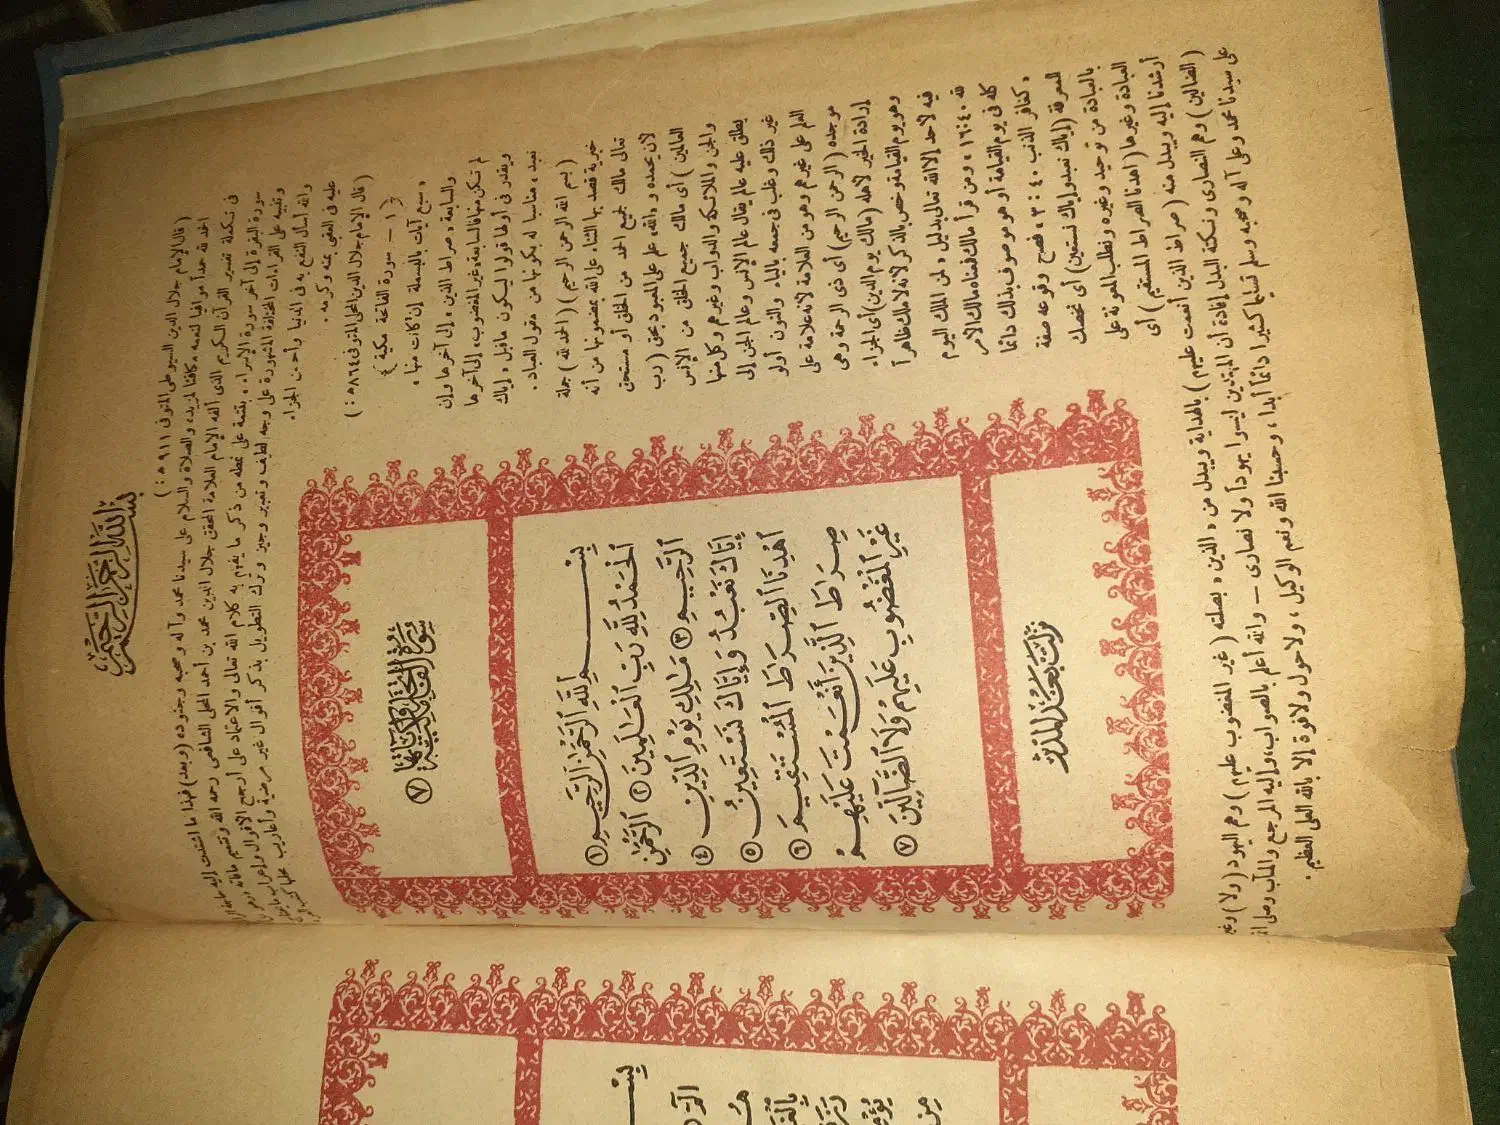 بسم الله الرحمن الرحيم
( قال الإمام جلال الدين السيوطى المتوفى ٩١١ ه : )
الحمد لله حمداً موافيا لنعمه ، مكافئا لمزيده ، والصلاة والسلام على سيدنا محمد وآله وصحبه وجنوده (وبعد) فهذا ما اشتدت إليه حاجة
فى تكملة تفسير القرآن الكريم الذى ألفه الإمام العلامة المحقق جلال الدين محمد بن أحمد المحلى الشافعى رحمه الله وتتميم ما فاته وهو
سورة البقرة إلى آخر سورة الإسراء ، بتتمة على نمطه من ذكر ما يفهم به كلام الله تعالى والاعتماد على أرجح الأقوال وإعراب ما
وتنبيه على القراءات المختلفة المشهورة على وجه لطيف وتعبير وجيز وترك التطويل بذكر أقوال غير مرضية وأعاريب محلها كتب
والله أسأل النفع به فى الدنيا وأحسن الجزاء
عليه فى العقبى بمنه وكرمه .
( قال الإمام جلال الدين المحلى المتوفى ٨٦٤ ه : )
﴿ ١ – سورة الفاتحة مكية ﴾
« سبع آيات بالبسملة إن كانت منها ،
والسابعة « صراط الذين » إلى آخرها وإن
لم تكن منها فالسابعة «غير المغضوب» إلى آخرها
ويقدر فى أولها قولوا ليكون ما قبل « إياك
نعبد » مناسبا له بكونها من مقول العباد .
( بسم الله الرحمن الرحيم ) ( الحمد لله ) جملة
خبرية قصد بها الثناء على الله بمضمونها من أنه
تعالى مالك لجميع الحمد من الخلق أو مستحق
لأن يحمدوه و «الله» علم على المعبود بحق ( رب
العالمين ) أى مالك جميع الخلق من الإنس
والجن والملائكة والدواب وغيرهم وكل منها
يطلق عليه عالم يقال عالم الإنس وعالم الجن إلى
غير ذلك وغلب فى جمعه بالياء والنون أولو
العلم على غيرهم وهو من العلامة لأنه علامة على
موجده ( الرحمن الرحيم ) أى ذى الرحمة وهى
إرادة الخير لأهله (مالك يوم الدين) أى الجزاء
وهو يوم القيامة وخص بالذكر لأنه لا ملك ظاهراً
فيه لأحد إلا الله تعالى بدليل « لمن الملك اليوم
لله ١٦:٤٠ » ومن قرأ مالك فمعناه مالك الأمر
كله فى يوم القيامة أو هو موصوف بذلك دائما
« كغافر الذنب ٣:٤٠ » فصح وقوعه صفة
للمعرفة (إياك نعبد وإياك نستعين) أى نخصك
بالعبادة من توحيد وغيره ونطلب المعونة على
العبادة وغيرها ( اهدنا الصراط المستقيم ) أى
سورة الفاتحة مكية وآياتها ٧
بِسْمِ ٱللَّهِ ٱلرَّحْمَٰنِ ٱلرَّحِيمِ ١
ٱلْحَمْدُ لِلَّهِ رَبِّ ٱلْعَٰلَمِينَ ٢ ٱلرَّحْمَٰنِ
ٱلرَّحِيمِ ٣ مَٰلِكِ يَوْمِ ٱلدِّينِ ٤
إِيَّاكَ نَعْبُدُ وَإِيَّاكَ نَسْتَعِينُ ٥
ٱهْدِنَا ٱلصِّرَٰطَ ٱلْمُسْتَقِيمَ ٦
صِرَٰطَ ٱلَّذِينَ أَنْعَمْتَ عَلَيْهِمْ
غَيْرِ ٱلْمَغْضُوبِ عَلَيْهِمْ وَلَا ٱلضَّآلِّينَ ٧
نزلت بعد المدثر
أرشدنا إليه ويبدل منه ( صراط الذين أنعمت عليهم ) بالهداية ويبدل من « الذين » بصلته ( غير المغضوب عليهم ) وهم اليهود ( ولا ) وغير
( الضالين ) وهم النصارى ونكتة البدل إفادة أن المهتدين ليسوا يهوداً ولا نصارى – والله أعلم بالصواب، وإليه المرجع والمآب وصلى الله
على سيدنا محمد وعلى آله وصحبه وسلم تسليما كثيرا دائماً أبدا ، وحسبنا الله ونعم الوكيل ، ولا حول ولا قوة إلا بالله العلى العظيم .